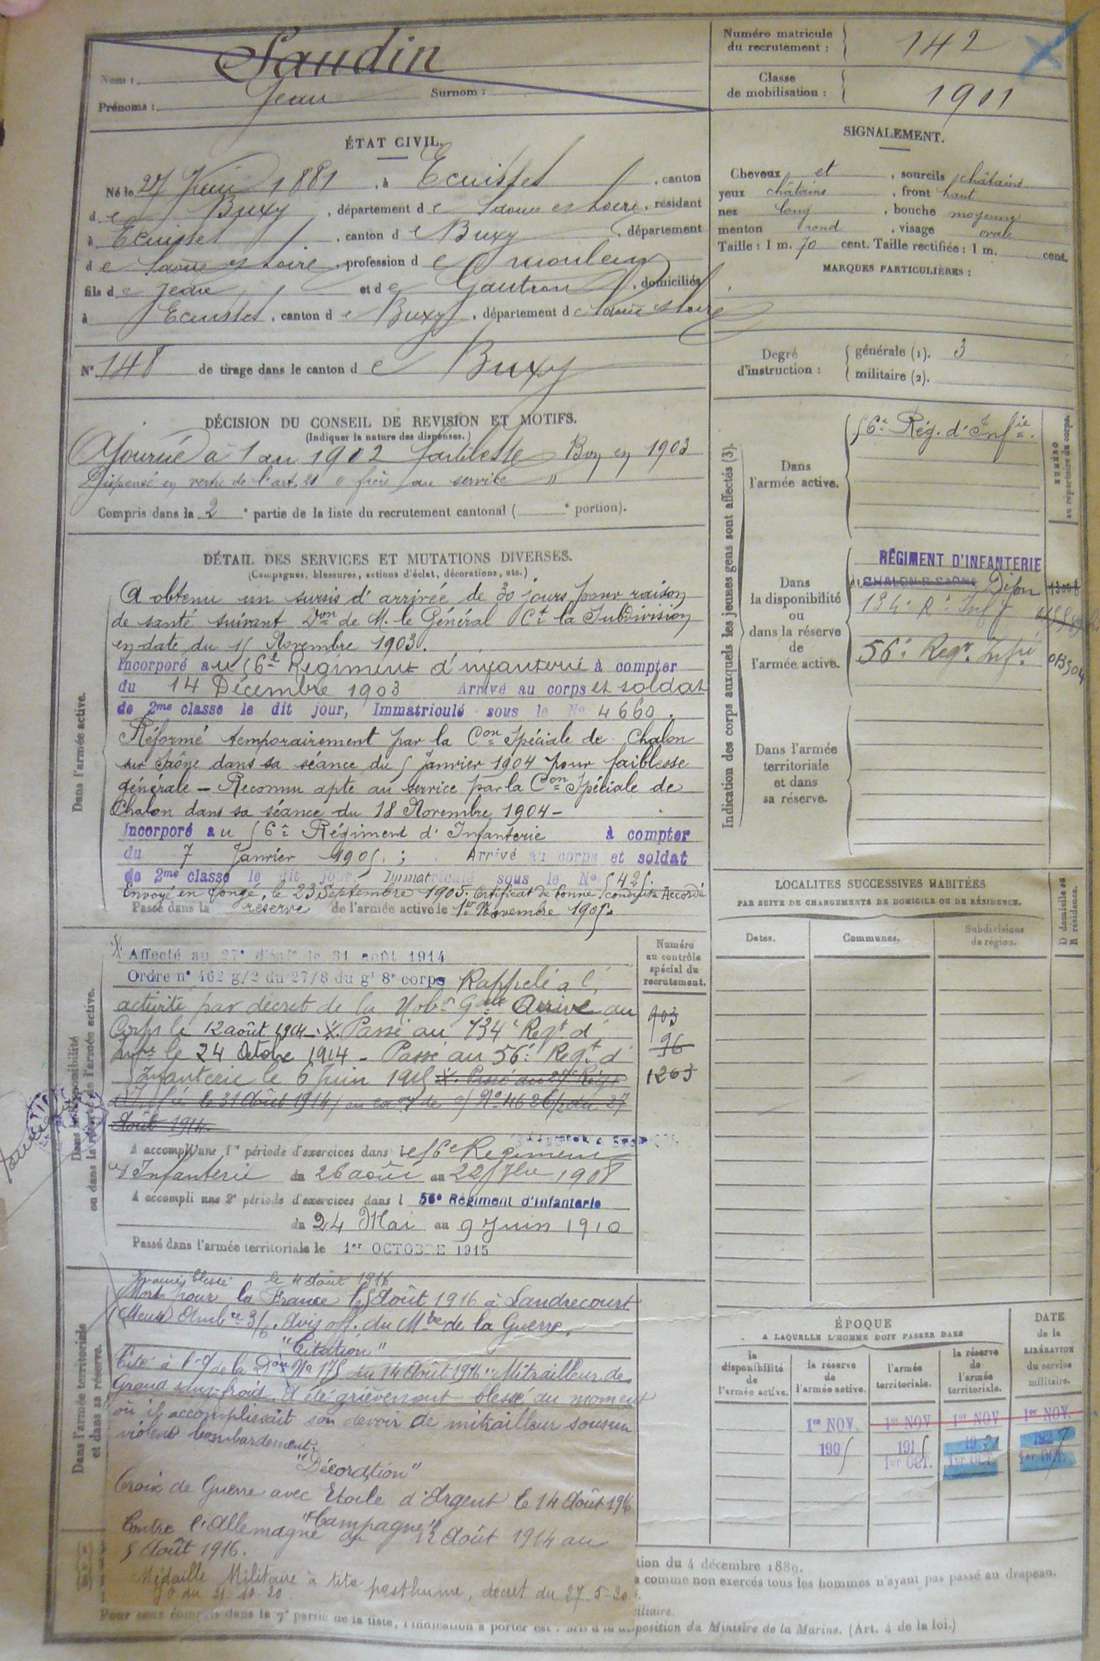 Nom : Saudin
Prénoms : Jean Surnom :
Numéro matricule du recrutement : 142
Classe de mobilisation : 1901
ÉTAT CIVIL.
Né le 27 1881, à Ecuisses, canton
de Buxy, département de Saône et Loire, résidant
à Ecuisses, canton de Buxy, département
de Saône et Loire, profession de
fils de Jean et de Gautron, domiciliés
à Ecuisses, canton de Buxy, département de Saône et Loire
N° 148 de tirage dans le canton de Buxy
SIGNALEMENT.
Cheveux et, sourcils châtains
yeux châtains, front haut
nez long, bouche moyenne
menton rond, visage ovale
Taille : 1 m. 70 cent. Taille rectifiée : 1 m. cent.
MARQUES PARTICULIÈRES :
Degré d'instruction : générale (1). 3
militaire (2).
DÉCISION DU CONSEIL DE REVISION ET MOTIFS.
(Indiquer la nature des dispenses.)
Ajourné à 1 an 1902 faiblesse Bon en 1903
Dispensé en vertu de l'art. 21 frère au service
Compris dans la 2e partie de la liste du recrutement cantonal ( e portion).
DÉTAIL DES SERVICES ET MUTATIONS DIVERSES.
(Campagnes, blessures, actions d'éclat, décorations, etc.)
Dans l'armée active.
A obtenu un sursis d'arrivée de 30 jours pour raison
de santé suivant Don de M. le Général Ct la Subdivision
en date du 15 Novembre 1903.
Incorporé au 56e Régiment d'infanterie à compter
du 14 Décembre 1903 Arrivé au corps et soldat
de 2me classe le dit jour, Immatriculé sous le No 4660.
Réformé temporairement par la Con Spéciale de Chalon
sur Saône dans sa séance du 5 Janvier 1904 pour faiblesse
générale – Reconnu apte au service par la Con Spéciale de
Chalon dans sa séance du 18 Novembre 1904 –
Incorporé au 56e Régiment d'Infanterie à compter
du 7 Janvier 1905 ; Arrivé au corps et soldat
de 2me classe le dit jour, Immatriculé sous le No 5425.
Envoyé en congé, le 23 Septembre 1905. Certificat de bonne conduite Accordé
Passé dans la réserve de l'armée active le 1er Novembre 1905.
Indication des corps auxquels les jeunes gens sont affectés (3).
NUMÉRO au répertoire du corps.
Dans l'armée active. 56e Rég. d'Infie.
Dans la disponibilité ou dans la réserve de l'armée active.
RÉGIMENT D'INFANTERIE
CHALON-S-SAÔNE Dijon
134e Rt Inf
56e Regt Infie 013504
Dans l'armée territoriale et dans sa réserve.
LOCALITÉS SUCCESSIVES HABITÉES
PAR SUITE DE CHANGEMENTS DE DOMICILE OU DE RÉSIDENCE.
Dates. Communes. Subdivisions de région. D domicile ou R résidence.
Dans la disponibilité ou dans la réserve de l'armée active.
Numéro au contrôle spécial du recrutement.
903
96
1263
Affecté au 27e d'Inf. le 31 août 1914
Ordre n° 462 g/2 du 27/8 du gl 8e corps Rappelé à l'
activité par décret de la Mobon Gale Arrivé au
Corps le 12 août 1914. X. Passé au 134e Regt d'
Infie le 24 Octobre 1914 – Passé au 56e Regt d'
Infanterie le 6 Juin 1915 X. Passé au 27e Régt
d'Infie le 31 Août 1914 du 27
Août 1914.
A accompli une 1re période d'exercices dans le 56e Régiment
d'Infanterie du 26 août au 22 7bre 1908
A accompli une 2e période d'exercices dans l 56e Régiment d'Infanterie
du 24 Mai au 9 Juin 1910
Passé dans l'armée territoriale le 1er OCTOBRE 1915
Dans l'armée territoriale et dans sa réserve.
blessé le 4 Août 1916
Mort pour la France le 5 Août 1916 à Landrecourt
(Meuse) Ambce 3/6. Avis off. du Mtre de la Guerre.
"Citation"
Cité à l'o/ de la Don No 175 du 14 Août 1916 "Mitrailleur de
Grand sang-froid. A été grièvement blessé au moment
où il accomplissait son devoir de mitrailleur sous un
violent bombardement.
"Décoration"
Croix de Guerre avec Etoile d'Argent le 14 Août 1916
"Campagne"
Contre l'Allemagne du 12 Août 1914 au
5 Août 1916.
Médaille Militaire à titre posthume, décret du 27-5-20
du 21-10-20
ÉPOQUE
A LAQUELLE L'HOMME DOIT PASSER DANS
la disponibilité de l'armée active. la réserve de l'armée active. l'armée territoriale. la réserve de l'armée territoriale. DATE de la LIBÉRATION du service militaire.
1er NOV. 1er NOV. 1er NOV 1er NOV.
1905 1915 1927
1er OCT. 1er OCT. 1er OCT.
tion du 4 décembre 1889.
a comme non exercés tous les hommes n'ayant pas passé au drapeau.
Pour ceux compris dans la partie de la liste, l'indication à porter est : Mis à la disposition du Ministre de la Marine. (Art. 4 de la loi.)